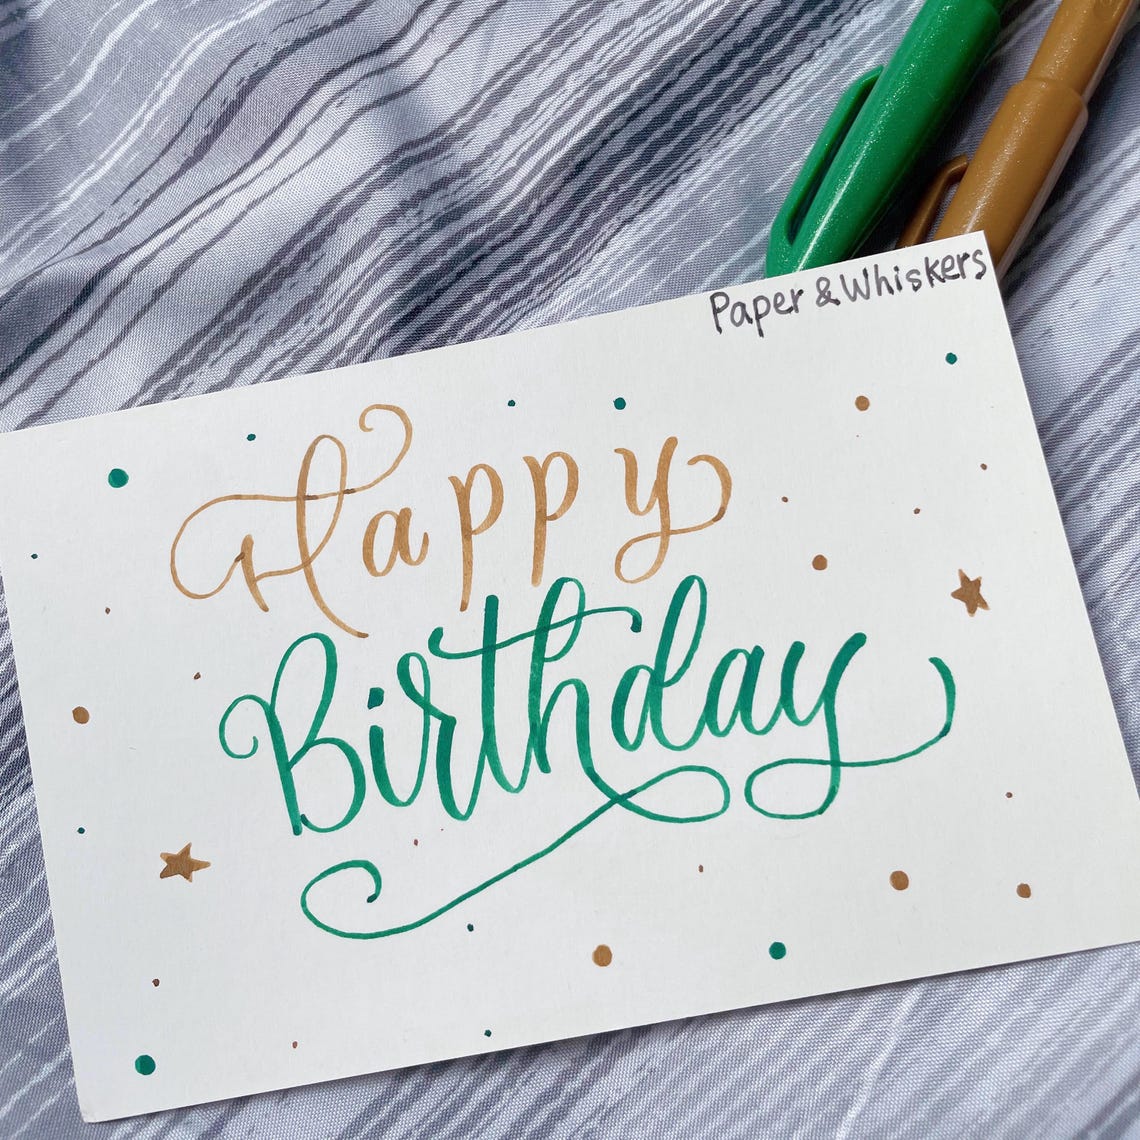 Paper & Whiskers
Happy
Birthday